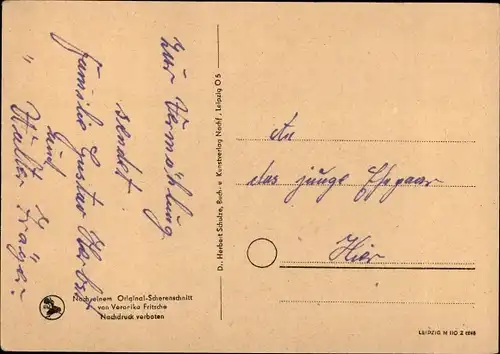 Zur Vermählung
sendet
Familie Gustav Herbst
und
" Walter
An
das junge Ehepaar
Hier
Dr. Herbert Schulze, Buch- u. Kunstverlag Nachf., Leipzig O 5
Nach einem Original-Scherenschnitt
von Veronika Fritsche
Nachdruck verboten
LEIPZIG M 110 Z